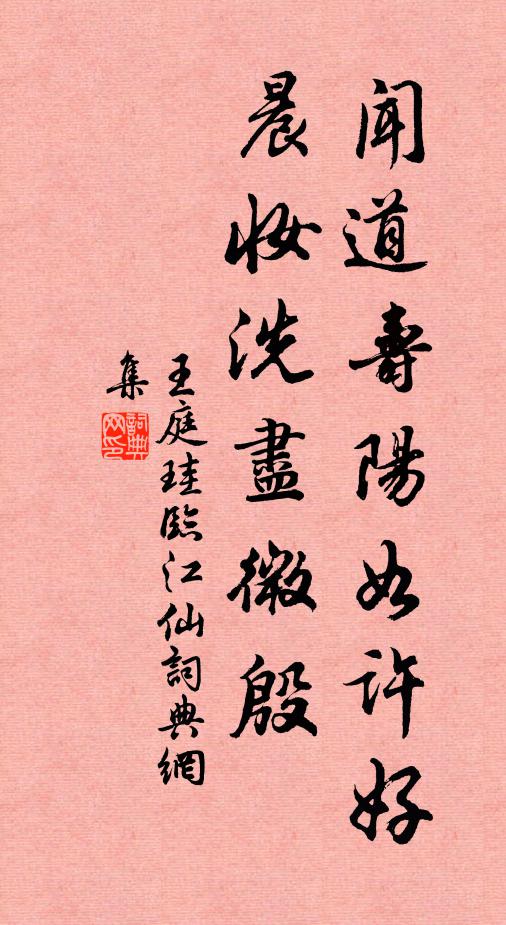 聞道壽陽如許好
晨妝洗盡微殷
王庭珪臨江仙詞典網
集
詞典
网印